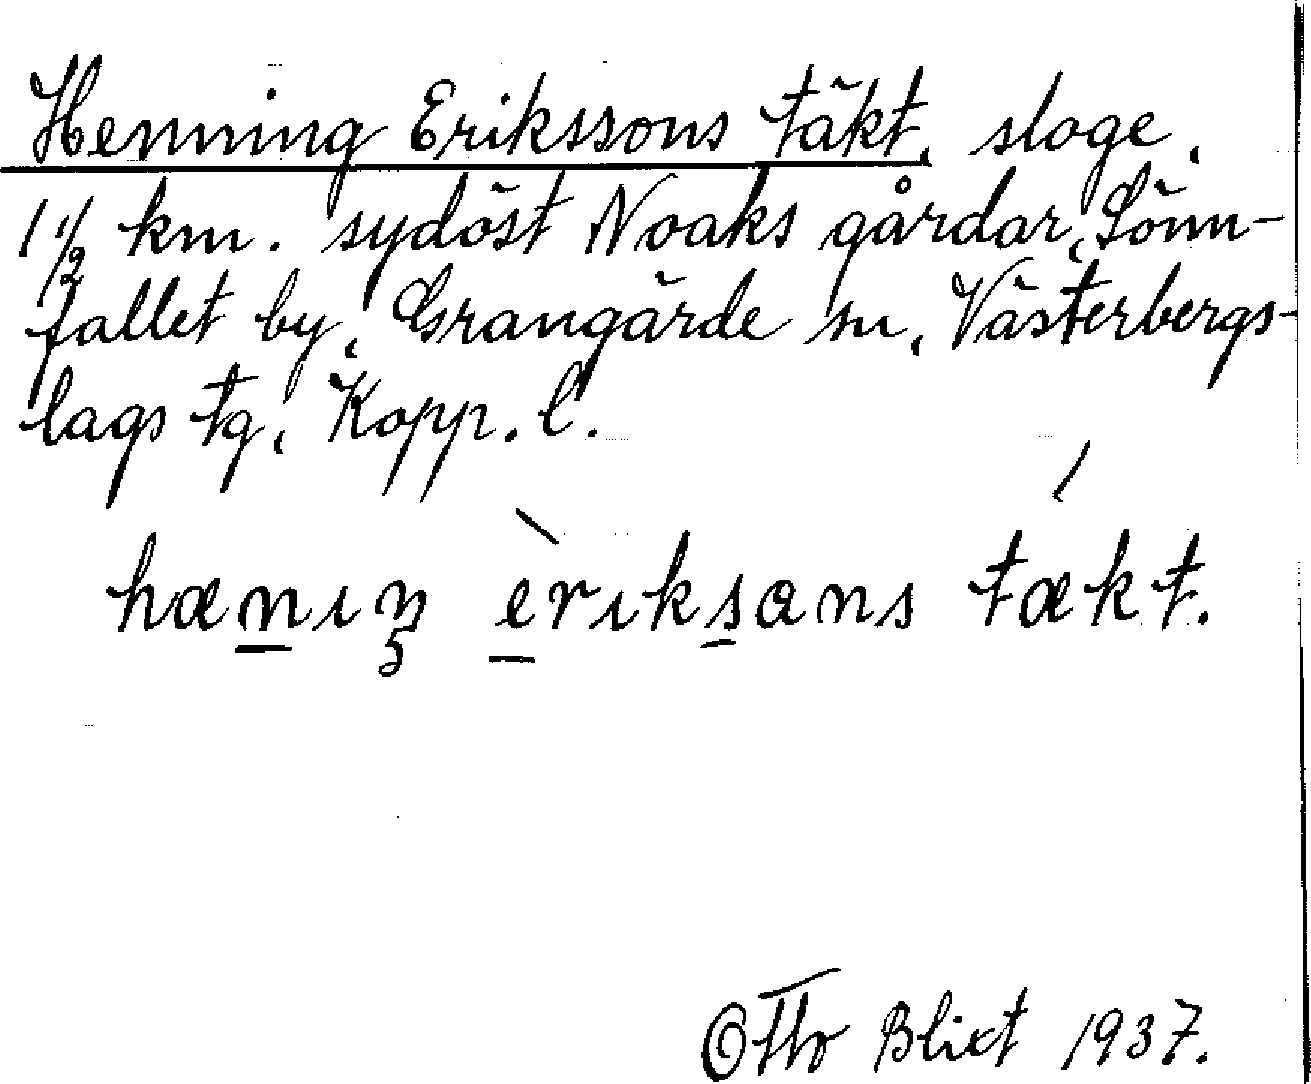 Henning Erikssons täkt, sloge,
1 1/2 km. sydöst Noaks gårdar, Sönn-
fallet by, Grangärde sn, Västerbergs-
lags tg, Kopp. l.
hænıŋ èrıksans tækt.
Otto Blixt 1937.